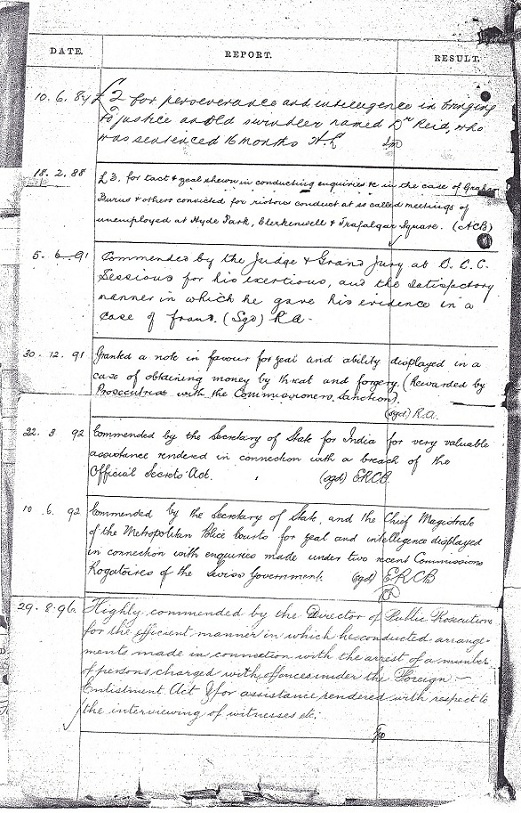 DATE. REPORT. RESULT.
10. 6. 84 £2 for perseverance and intelligence in bringing
to justice an old swindler named Dr Reid, who
was sentenced 16 months H.L.
18. 2. 88 £3. for tact & zeal shewn in conducting enquiries &c in the case of Graham
Burns & others convicted for riotous conduct at so called meetings of
unemployed at Hyde Park, Clerkenwell & Trafalgar Square. (ACB)
5. 6. 91 Commended by the Judge & Grand Jury at C.C.C.
Sessions for his exertions, and the satisfactory
manner in which he gave his evidence in a
case of fraud. (Sgd) R.A.
30. 12. 91 Granted a note in favour for zeal and ability displayed in a
case of obtaining money by threat and forgery. (Rewarded by
Prosecutrix with the Commissioners Sanction).
(sgd) R.A.
22. 3 92 Commended by the Secretary of State for India for very valuable
assistance rendered in connection with a breach of the
Official Secrets Act. (sgd) ERCB.
10. 6. 92 Commended by the Secretary of State, and the Chief Magistrate
of the Metropolitan Police Courts for zeal and intelligence displayed
in connection with enquiries made under two recent Commissions
Rogatoires of the Swiss Government. (sgd) ERCB
29. 8. 96 Highly commended by the Director of Public Prosecutions
for the efficient manner in which he conducted arrange-
ments made in connection with the arrest of a number
of persons charged with offences under the Foreign
Enlistment Act & for assistance rendered with respect to
the interviewing of witnesses etc: